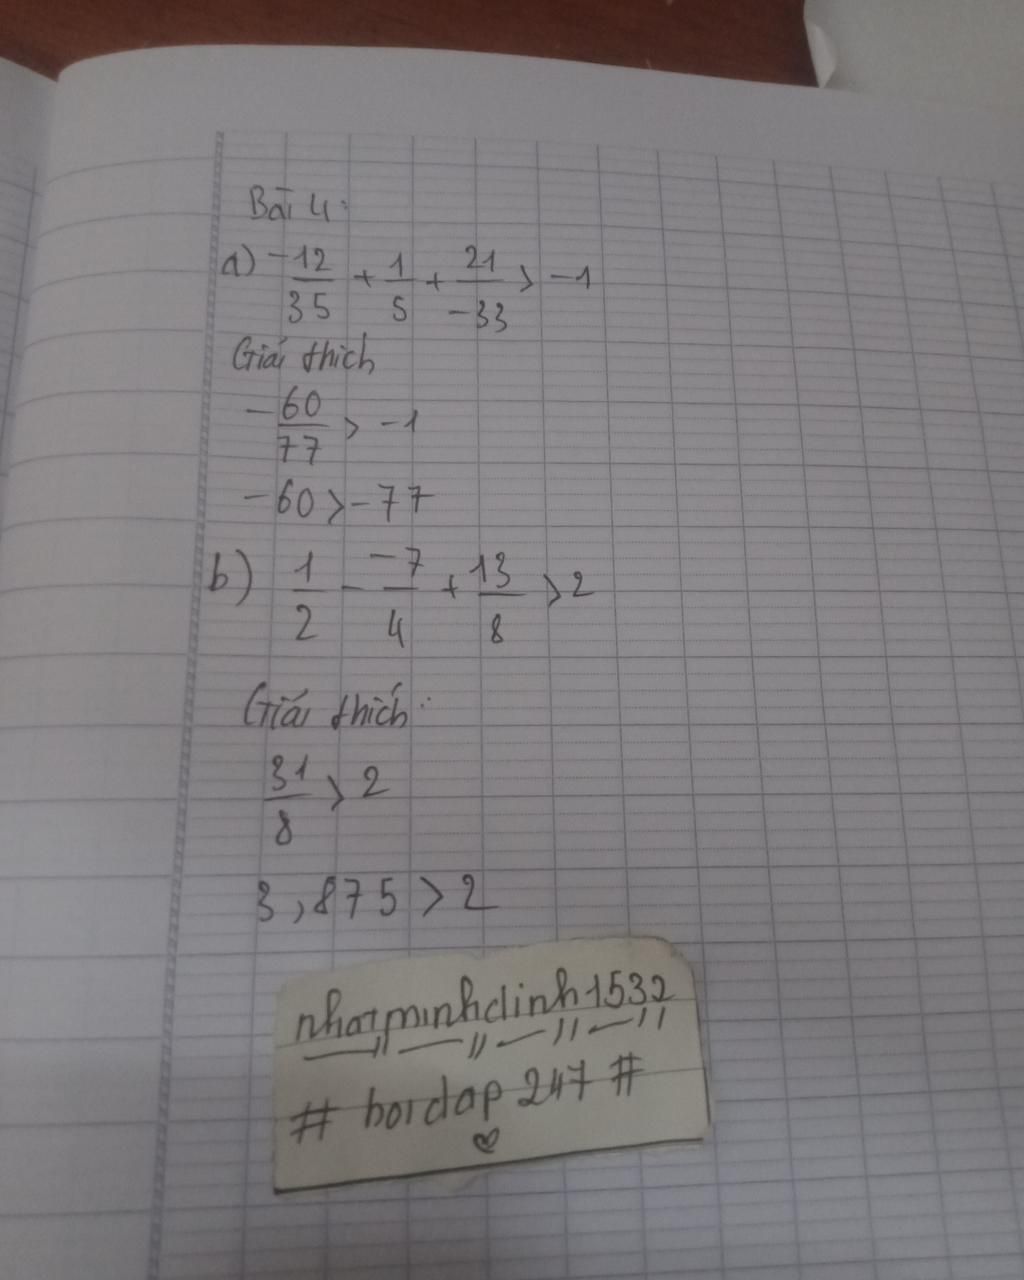 Bài 4:
a) -12/35 + 1/5 + 21/-33 > -1
Giải thich
-60/77 > -1
-60 > -77
b) 1/2 - -7/4 + 13/8 > 2
Giải thích:
31/8 > 2
3,875 > 2
nhatminhdinh1532
# boidap 247 #